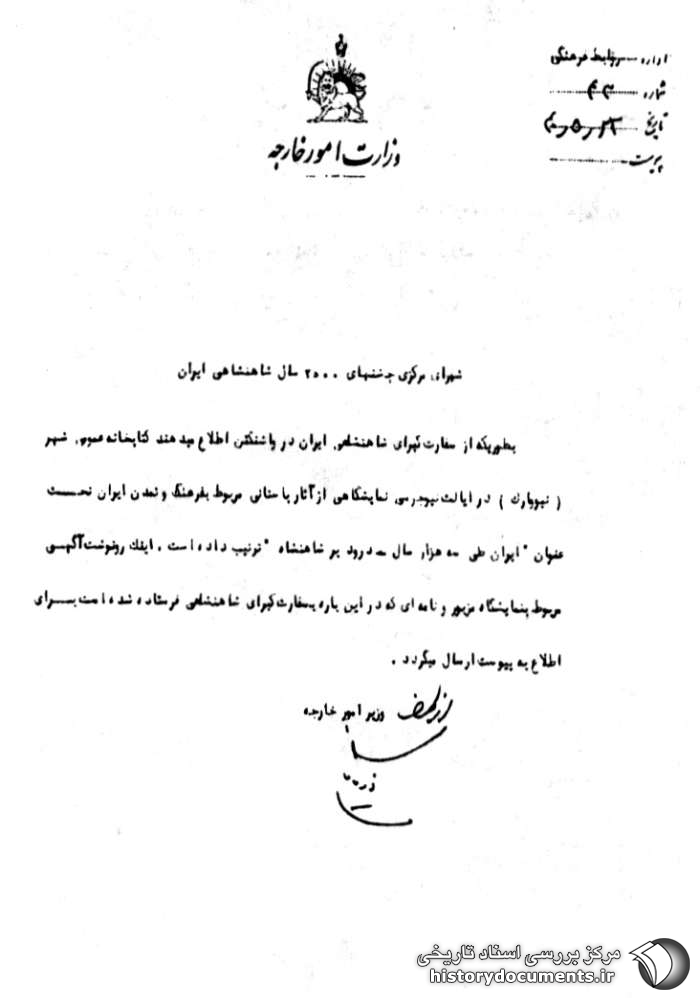 اداره روابط فرهنگی
شماره
تاریخ
پیوست
وزارت امور خارجه
شورای مرکزی جشنهای ۲۵۰۰ سال شاهنشاهی ایران
بطوریکه از سفارت کبرای شاهنشاهی ایران در واشنگتن اطلاع میدهند کتابخانه عمومی شهر
( نیویارک ) در ایالت نیوجرسی نمایشگاهی از آثار باستانی مربوط بفرهنگ و تمدن ایران تحت
عنوان " ایران طی سه هزار سال ــ درود بر شاهنشاه " ترتیب داده است . اینک رونوشت آگهی
مربوط بنمایشگاه مزبور و نامه ای که در این باره بسفارت کبرای شاهنشاهی فرستاده شده است بــرای
اطلاع به پیوست ارسال میگردد .
از طرف وزیر امور خارجه
مرکز بررسی اسناد تاریخی
historydocuments.ir